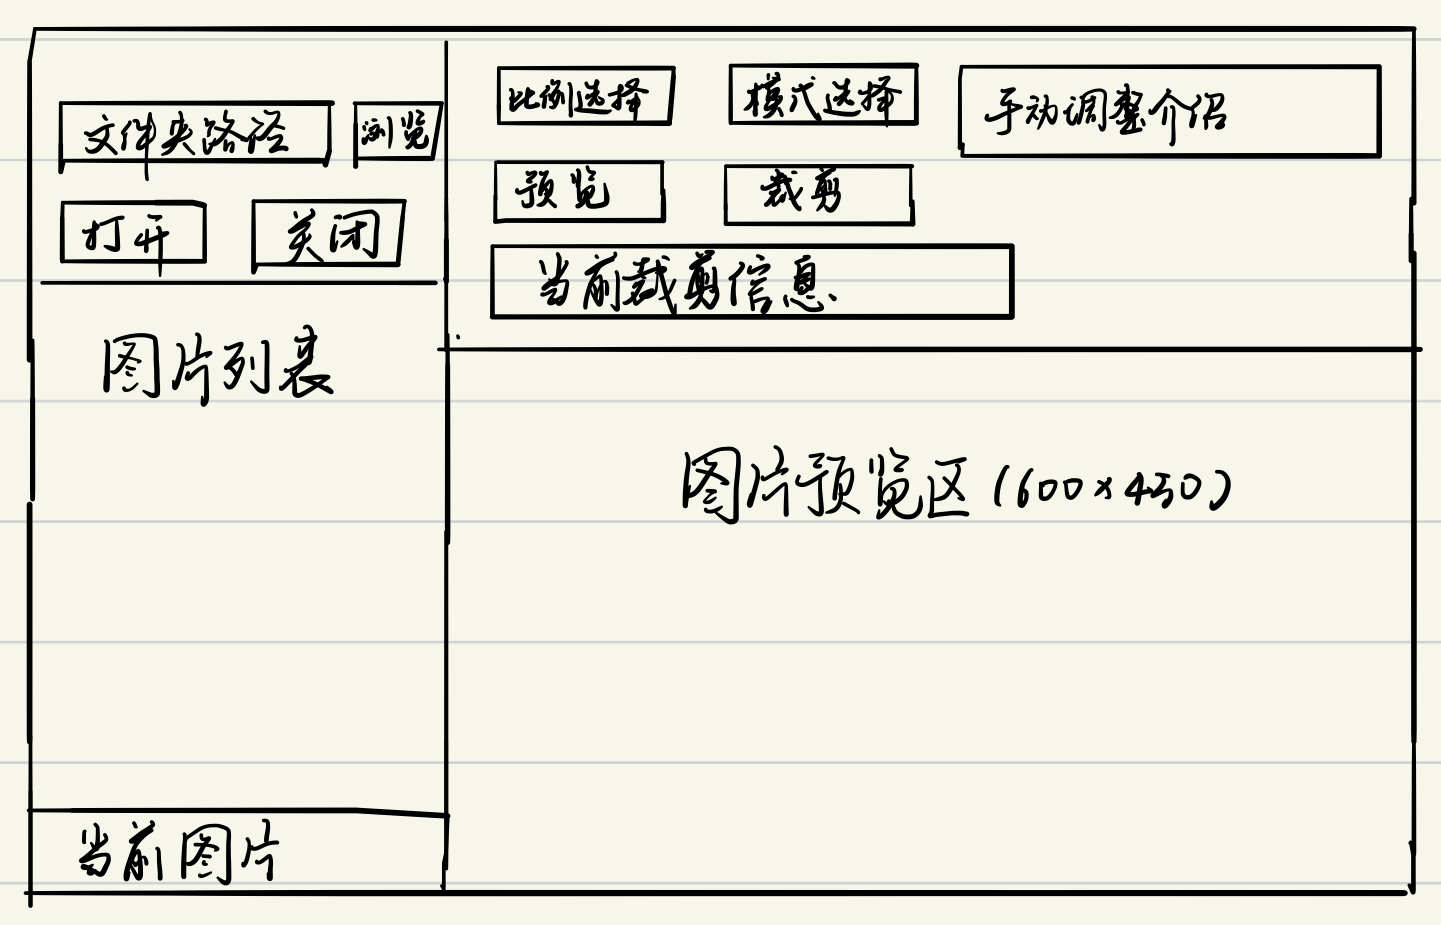 文件夹路径 浏览
打开 关闭
图片列表
当前图片
比例选择 模式选择 手动调整介绍
预览 裁剪
当前裁剪信息
图片预览区(600×450)